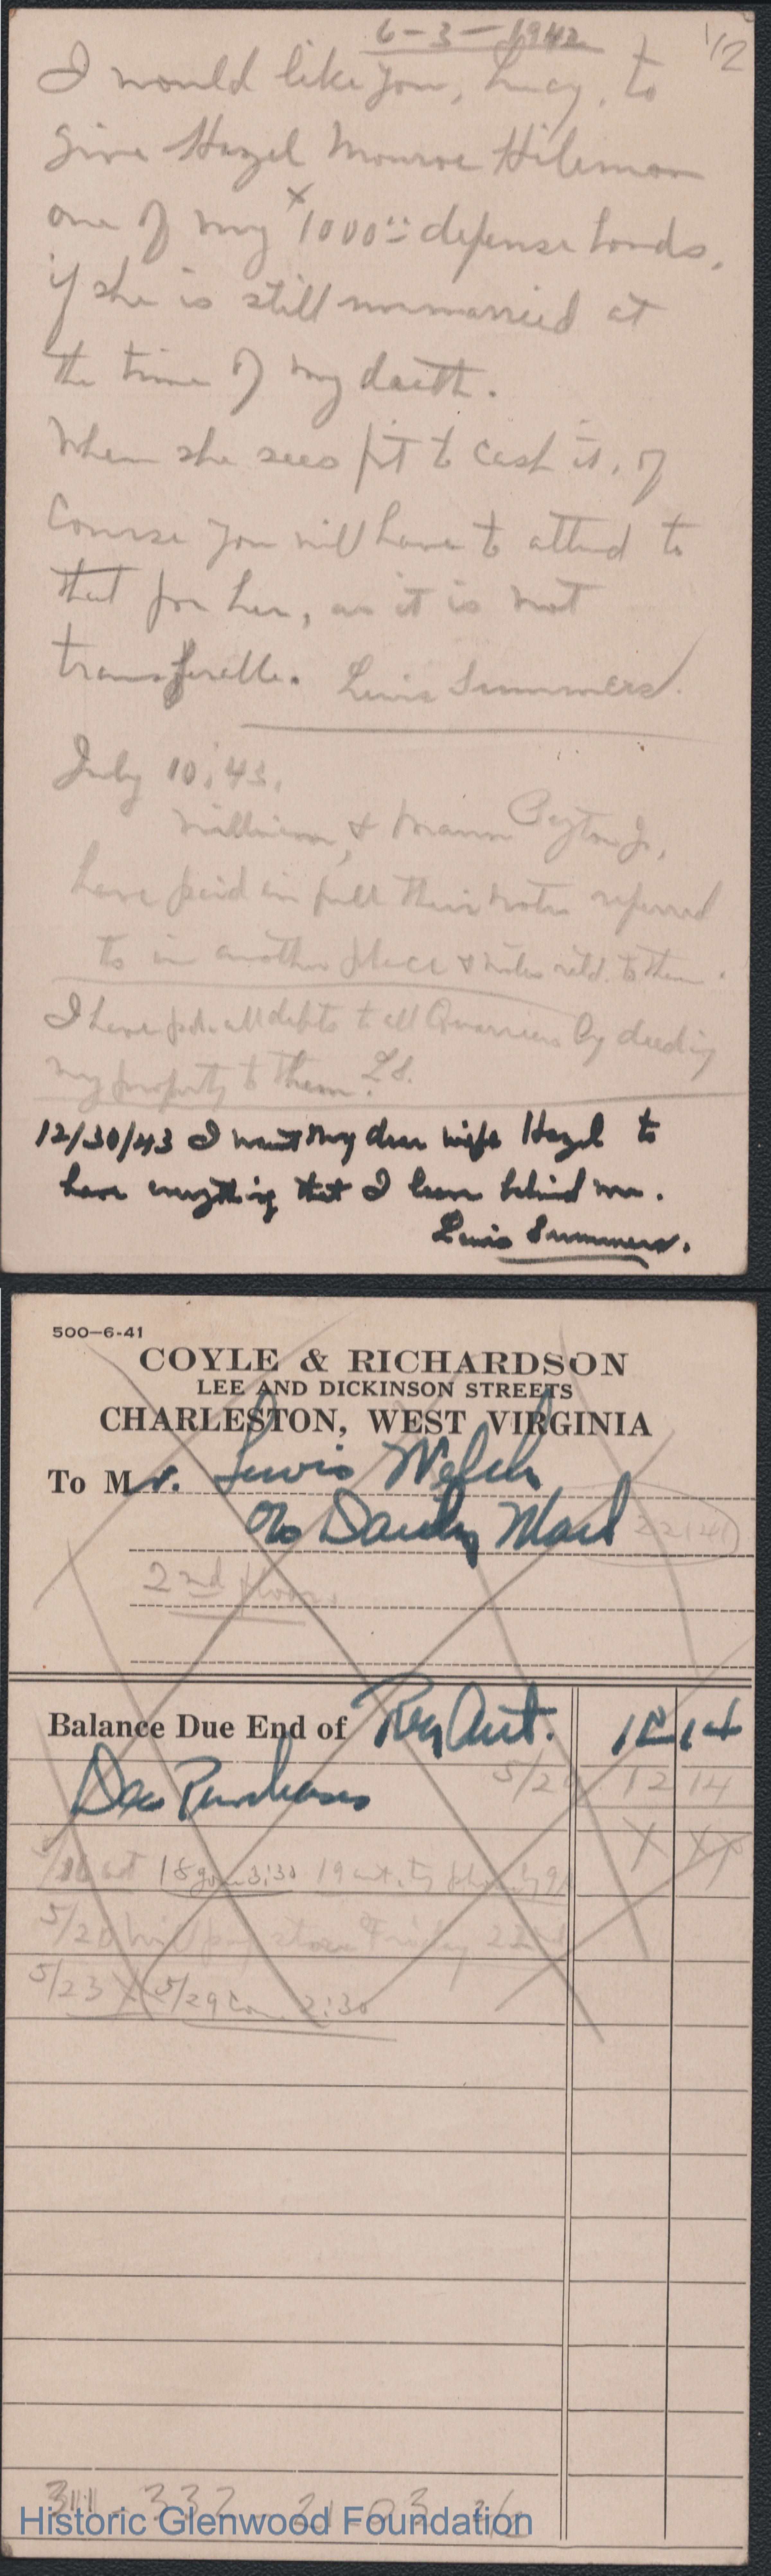 6-3-1942
1/2
I would like you, Lucy, to
give Hazel Monroe Hileman
one of my 1000.00 defense bonds,
if she is still unmarried at
the time of my death.
When she sees fit to cash it, of
course you will have to attend to
that for her, as it is not
transferable. Lewis Summers.
July 10, '43.
William, & Mann Peyton Jr,
have paid in full their notes referred
to in another place & notes retd. to them.
I have pd. all debts to all Quarriers by deeding
my property to them. L.S.
12/30/43 I want my dear wife Hazel to
have everything that I leave behind me.
Lewis Summers.
500-6-41
COYLE & RICHARDSON
LEE AND DICKINSON STREETS
CHARLESTON, WEST VIRGINIA
To Mr. Lewis Welch
c/o Dandy Maid 22141
2nd floor
Balance Due End of Reg Acct. 12 14
Dec Purchases 5/2 12 14
X XX
18 3:30 19
5/20 Will pay store Friday 22nd
5/23 X 5/29 2:30
332 21-03
Historic Glenwood Foundation